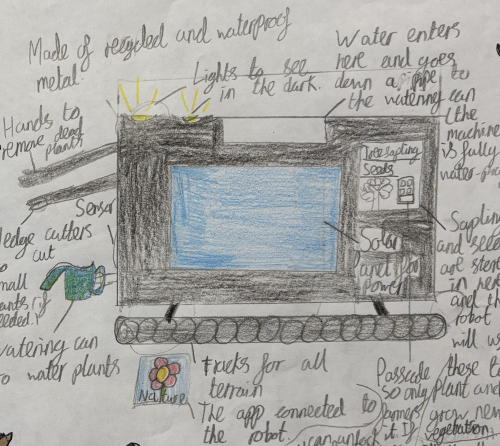 Made of recycled and waterproof
metal.
Lights to see
in the dark.
Water enters
here and goes
down a pipe to
the watering can
(the
machine
is fully
water-
Hands to
remove dead
plants
Sensor
cutters
cut
small
if
needed.)
watering can
to water plants
Tree sapling
Seeds
Solar
panel for
power
and
are
in
and the
robot
will us
these to
plant and
grow new
vegetation.
Nature
Tracks for all
terrain
The app connected to
the robot.
Passcode
so only
farmers
it. If